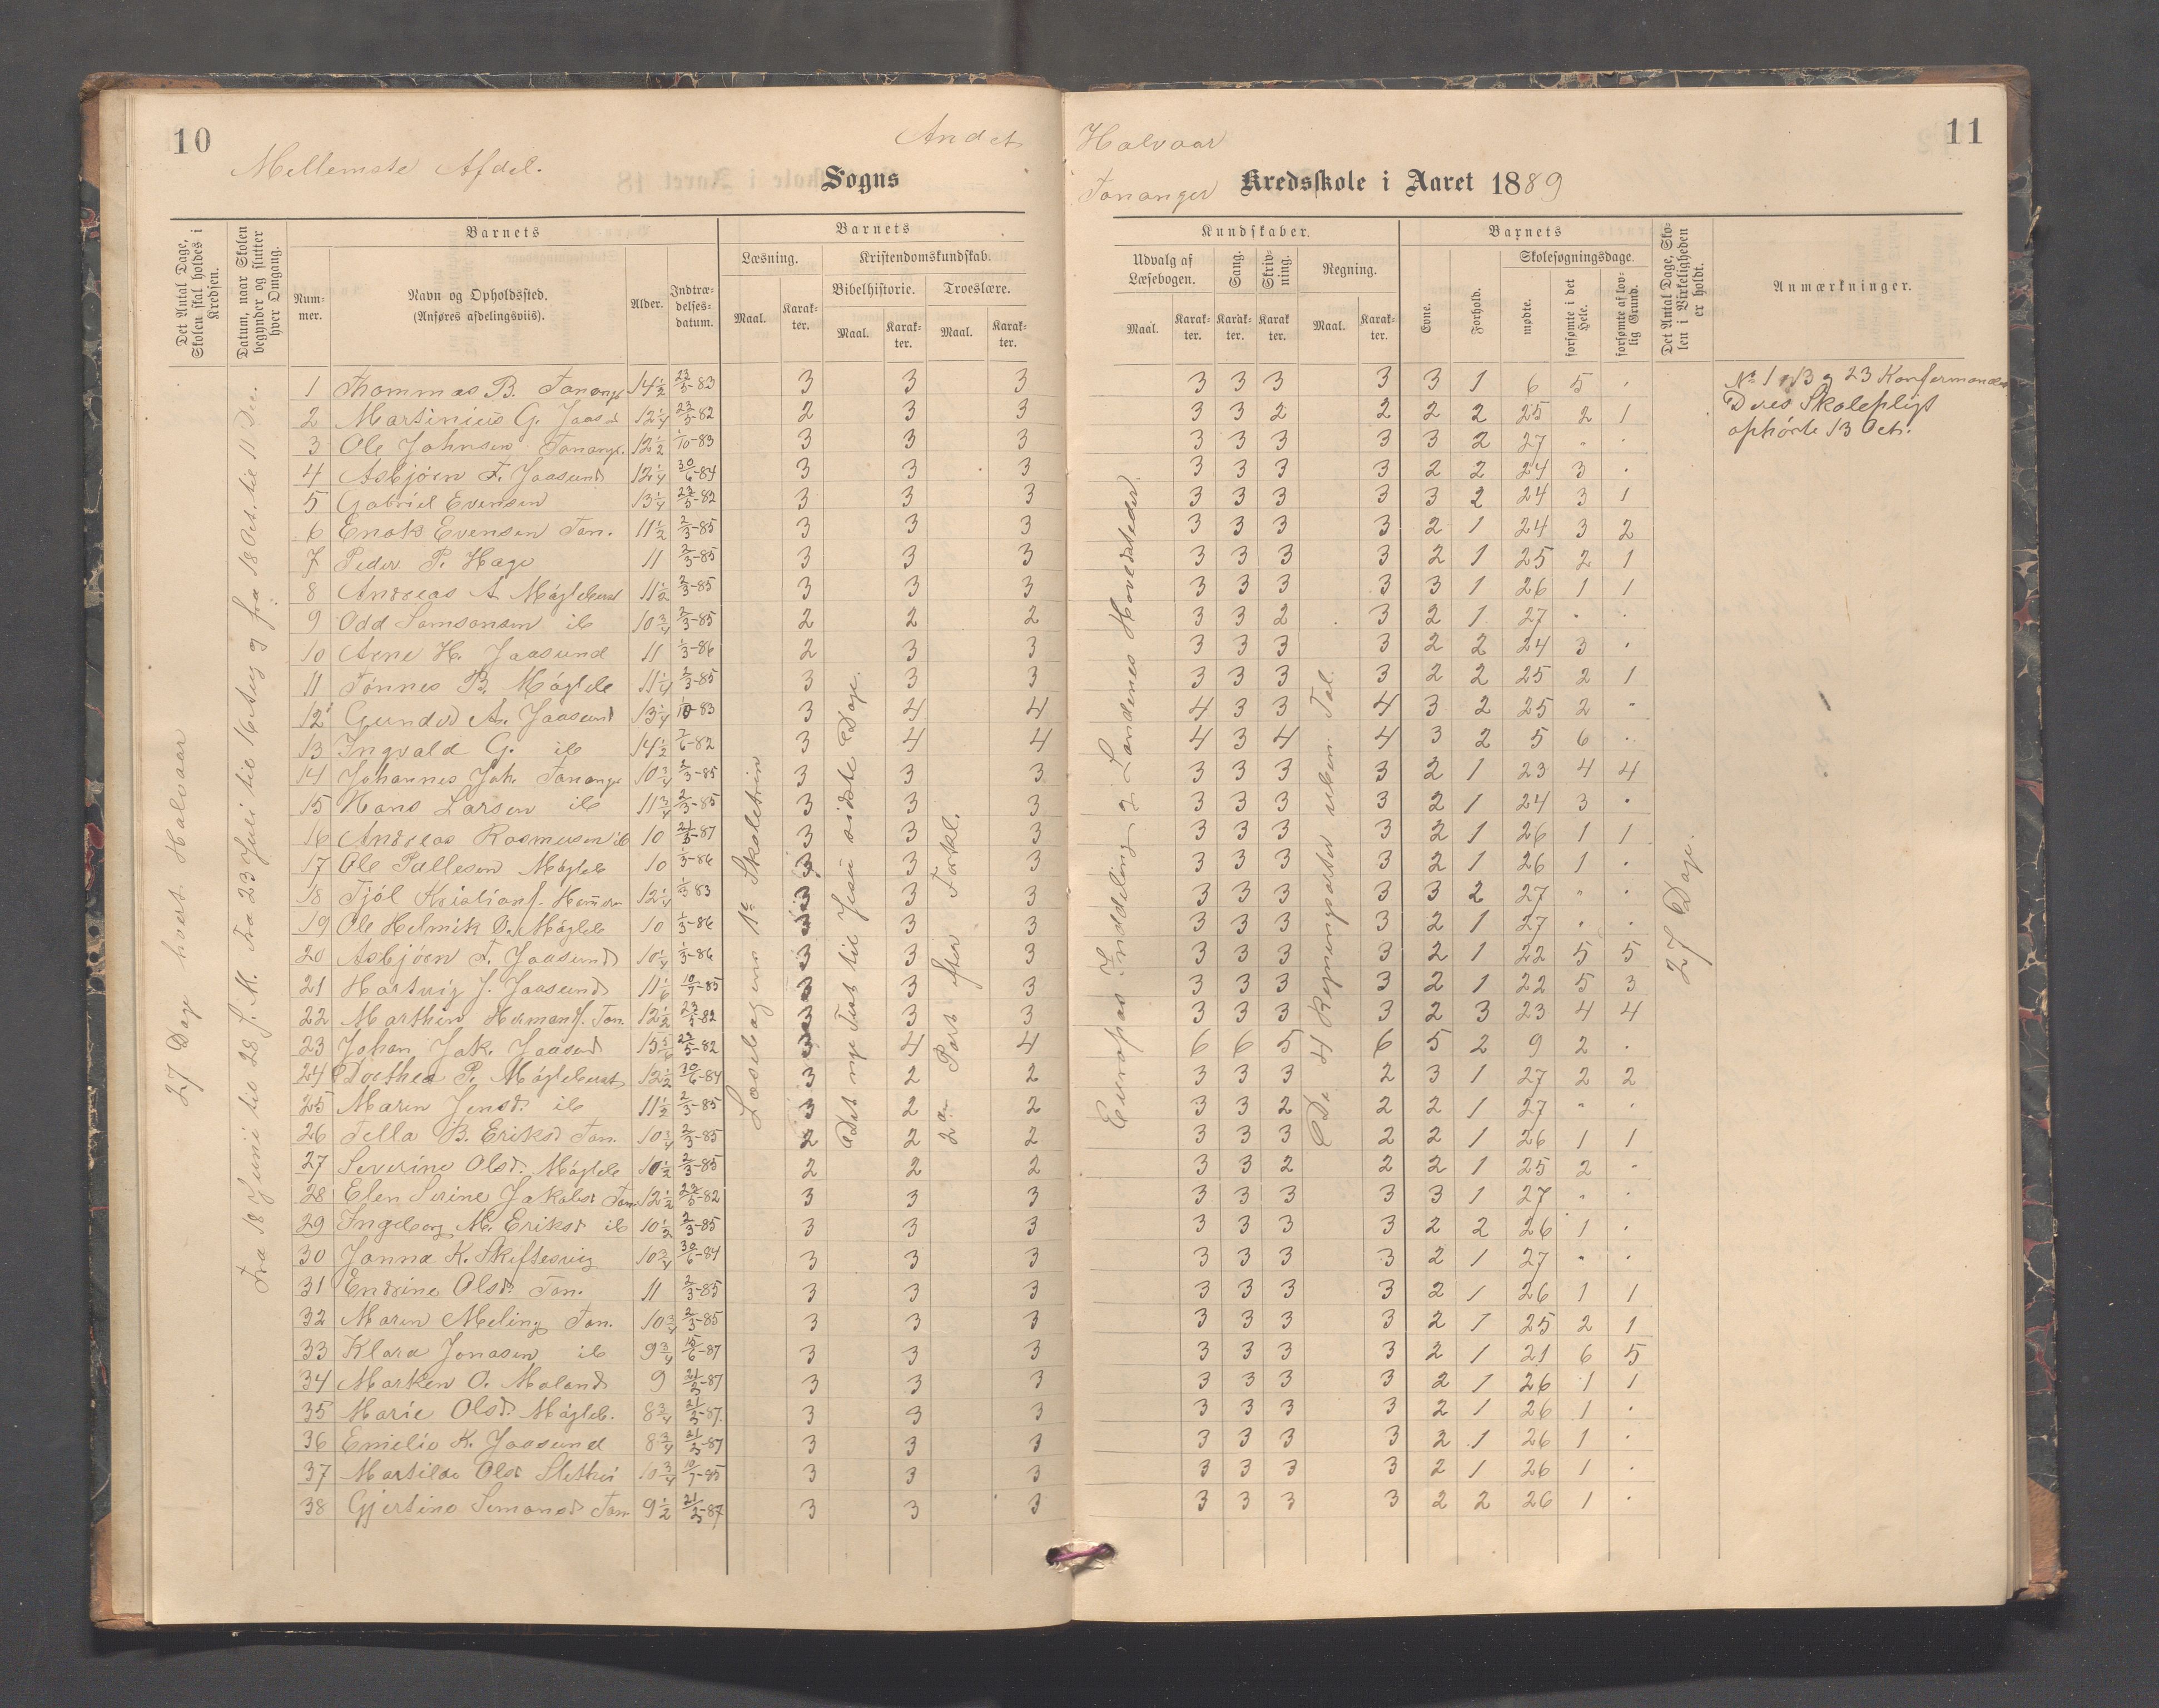 10
Mellemste Afdel.
Andet
Sogns
Halvaar
11
Tananger Kredsskole i Aaret 1889
Det Antal Dage, Skolen skal holdes i Kredsen.
Datum, naar Skolen begynder og slutter hver Omgang.
Barnets
Nummer.
Navn og Opholdssted.
(Anføres afdelingsviis).
Alder.
Indtrædelsesdatum.
Barnets
Læsning.
Kristendomskundskab.
Bibelhistorie.
Troeslære.
Maal.
Karakter.
Maal.
Karakter.
Maal.
Karakter.
Kundskaber.
Udvalg af Læsebogen.
Sang.
Skrivning.
Regning.
Maal.
Karakter.
Karakter.
Karakter.
Maal.
Karakter.
Barnets
Evne.
Forhold.
Skolesøgningsdage.
mødte.
forsømte i det Hele.
forsømte af lovlig Grund.
Det Antal Dage, Skolen i Virkeligheden er holdt.
Anmærkninger.
27 Dage hvert Halvaar
Fra 18 Juni til 28 s. M. Fra 23 Juli til 16 Aug og fra 18 Oct. til 11 Dec.
Læsebogens 1ste Skoletrin
Det nye Test til Jesu sidste Dage.
2den Part efter Forkl.
Europas Inddeling og Landenes Hovedsteder.
De 4 Regningsarter ubens. Tal.
27 Dage.
No 1, 13 og 23 Konfermander
Deres Skolepligt
ophørte 13 Oct.
1 Thommas B. Tanang 14 1/2 23/5-83 3 3 3 3 3 3 3 3 1 6 5 .
2 Martinius G. Jaas 12 1/4 23/5-82 2 3 3 3 3 2 2 2 2 25 2 1
3 Ole Johnsen Tanang. 12 1/2 1/10-83 3 3 3 3 3 3 3 3 2 27 . .
4 Asbjörn F. Jaasund 12 1/4 30/6-84 3 3 3 3 3 3 3 2 2 24 3 .
5 Gabriel Evensen 13 1/4 23/5-82 3 3 3 3 3 3 3 3 2 24 3 1
6 Enok Evensen Tan. 11 1/2 2/3-85 3 3 3 3 3 3 3 2 1 24 3 2
7 Peder P. Hage 11 2/3-85 3 3 3 3 3 3 3 2 1 25 2 1
8 Andreas A. Mögleburst 11 1/2 2/3-85 3 3 3 3 3 3 3 3 1 26 1 1
9 Odd Samsonsen ib 10 3/4 2/3-85 2 2 2 3 3 2 3 2 1 27 . .
10 Arne H. Jaasund 11 1/3-86 2 3 3 3 3 3 3 2 2 24 3 .
11 Tönnes B. Mögleb 11 1/4 2/3-85 3 3 3 3 3 3 3 2 2 25 2 1
12 Gunder A. Jaasund 13 1/4 1/10-83 3 4 4 4 3 3 4 3 2 25 2 .
13 Ingvald G. ib 14 1/2 7/6-82 3 4 4 4 3 4 4 3 2 5 6 .
14 Johannes Joh. Tanang 10 3/4 2/3-85 3 3 3 3 3 3 3 2 1 23 4 4
15 Hans Larsen ib 11 3/4 2/3-85 3 3 3 3 3 3 3 2 1 24 3 .
16 Andreas Rasmusen ib 10 21/3-87 3 3 3 3 3 3 3 2 1 26 1 1
17 Ole Pallesen Mögleb 10 1/3-86 3 3 3 3 3 3 3 2 1 26 1 .
18 Tjöl Kristians. 12 1/4 1/3 83 3 3 3 3 3 3 3 3 2 27 . .
19 Ole Helmik O. Mögleb 10 1/3-86 3 3 3 3 3 3 3 2 1 27 . .
20 Asbjörn T. Jaasund 10 1/4 1/3-86 3 3 3 3 3 3 3 2 1 22 5 5
21 Hartvig J. Jaasund 11 1/6 10/7-85 3 3 3 3 3 3 3 2 1 22 5 3
22 Marthin Hermans. Tan. 12 1/2 23/5-82 3 3 3 3 3 3 3 2 3 23 4 4
23 Johan Jak. Jaasund 15 3/4 23/5-82 3 4 4 6 6 5 6 5 2 9 2 .
24 Dorthea P. Mögleburst 12 1/2 30/6-84 3 2 2 3 3 3 2 3 1 27 2 2
25 Maren Jensd. ib 11 1/2 2/3-85 3 2 2 3 3 2 2 2 1 27 . .
26 Tella B. Eriksd Tan. 10 3/4 2/3-85 2 2 2 3 3 3 2 2 1 26 1 1
27 Severine Olsd. Mögleb 10 1/2 2/3-85 2 2 2 3 3 2 2 2 1 25 2 .
28 Elen Serine Jakobsd Tan 12 1/2 23/5-82 3 3 3 3 3 3 3 3 1 27 . .
29 Ingeborg M. Eriksd ib 10 1/2 2/3-85 3 3 3 3 3 3 3 2 2 26 1 .
30 Janna K. Skiftesvig 10 3/4 30/6-84 3 3 3 3 3 3 3 2 1 27 . .
31 Endrine Olsd. Tan. 11 2/3-85 3 3 3 3 3 3 3 2 1 26 1 1
32 Maren Meling Tan. 10 3/4 2/3-85 3 3 3 3 3 3 3 2 1 25 2 1
33 Klara Jonasen ib 9 3/4 15/6-87 3 3 3 3 3 3 3 2 1 21 6 5
34 Marken O. Moland 9 21/3-87 3 3 3 3 3 3 3 2 1 26 1 1
35 Marie Olsd. Mögleb. 8 3/4 21/3-87. 3 3 3 3 3 3 3 2 1 26 1 .
36 Emelie K. Jaasund 8 3/4 21/3-87 3 3 3 3 3 3 3 2 1 26 1 .
37 Martilde Olsd 10 3/4 10/7-85 3 3 3 3 3 3 3 2 1 26 1 .
38 Gjertine Simonsd Tan 9 1/2 21/3-87 3 3 3 3 3 3 3 2 2 26 1 .